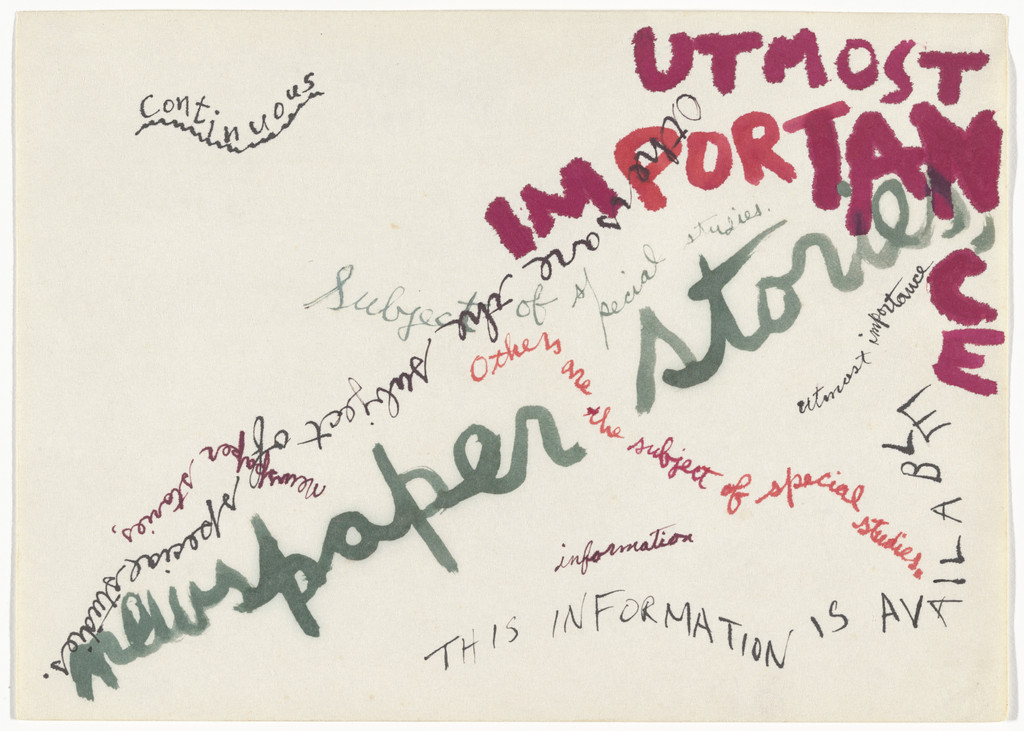 UTMOST
IMPORTANCE
continuous
Others are the subject of special studies.
Subject of special studies.
newspaper stories,
Others are the subject of special studies.
utmost importance
newspaper stories,
information
THIS INFORMATION IS AVAILABLE